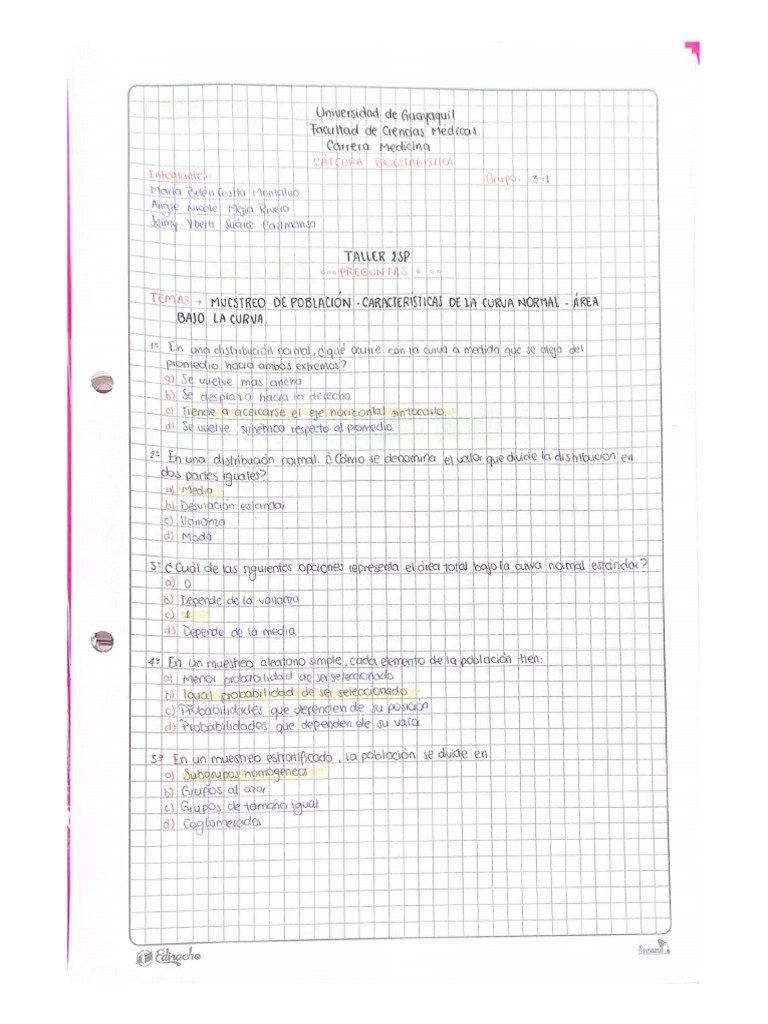 Universidad de Guayaquil
Facultad de Ciencias Médicas
Carrera Medicina
CÁTEDRA BIOESTADÍSTICA
Integrantes: Grupo: 3-1
María Belén Montalvo
Angie Nicole Mejia Rivero
Ybeth Suárez
TALLER 2SP
PREGUNTAS
TEMAS → MUESTREO DE POBLACIÓN - CARACTERÍSTICAS DE LA CURVA NORMAL - ÁREA
BAJO LA CURVA.
1º En una distribución normal, ¿qué ocurre con la curva a medida que se aleja del
promedio hacia ambos extremos?
a) Se vuelve más ancha
b) Se desplaza hacia la derecha
c) Tiende a acercarse el eje horizontal sin tocarlo
d) Se vuelve simétrica respecto al promedio
2º En una distribución normal. ¿Cómo se denomina el valor que divide la distribución en
dos partes iguales?
a) Media
b) Desviación estandar
c) Varianza
d) Moda
3º ¿Cuál de las siguientes opciones representa el área total bajo la curva normal estándar?
a) 0
b) Depende de la varianza
c) 1
d) Depende de la media
4º En un muestreo aleatorio simple, cada elemento de la población tien:
a) Menor probabilidad de ser seleccionado
b) Igual probabilidad de ser seleccionado
c) Probabilidades que dependen de su posición
d) Probabilidades que dependen de su valor
5º En un muestreo estratificado, la población se divide en
a) Subgrupos homogéneos
b) Grupos al azar
c) Grupos de tamaño igual
d) Coglomerados
Ednacho